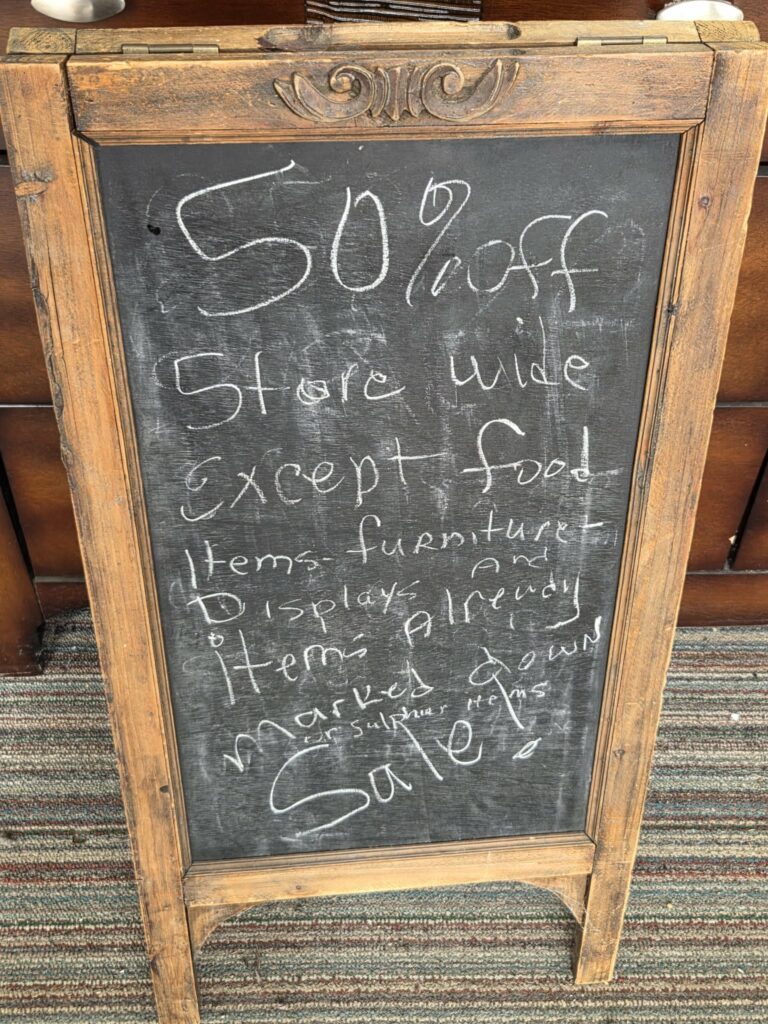 50% off
Store wide
Except food
Items - furniture -
Displays And
items Already
marked down
or Sulpher items
Sale!